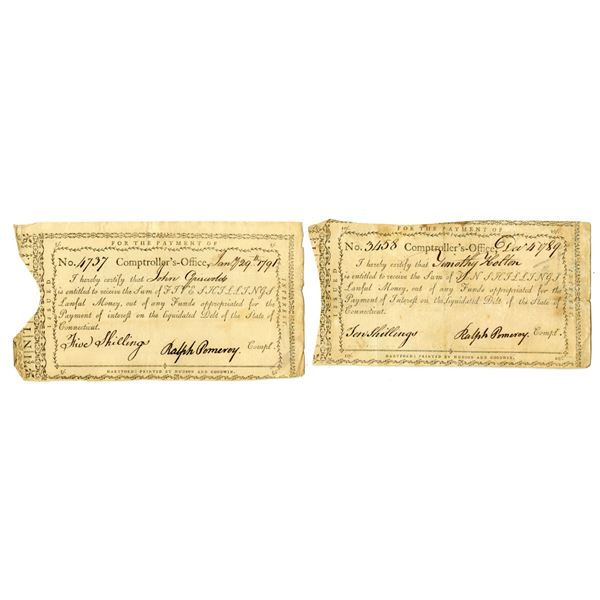 FOR THE PAYMENT OF
ISSUED
INTEREST
No. 4757 Comptroller's-Office, Jany 29th 1791
I hereby certify that John Griswold
is entitled to receive the Sum of FIVE SHILLINGS
Lawful Money, out of any Funds appropriated for the
Payment of interest on the liquidated Debt of the State of
Connecticut.
Five Shilling Ralph Pomeroy. Compt.
HARTFORD: PRINTED BY HUDSON AND GOODWIN.
FOR THE PAYMENT OF
ISSUED
No. 3458 Comptroller's-Office, Decr 4 1789
I hereby certify that Timothy
is entitled to receive the Sum of TEN SHILLINGS
Lawful Money, out of any Funds appropriated for the
Payment of Interest on the liquidated Debt of the State of
Connecticut.
Ten Shillings Ralph Pomeroy. Compt.
HARTFORD: PRINTED BY HUDSON AND GOODWIN.